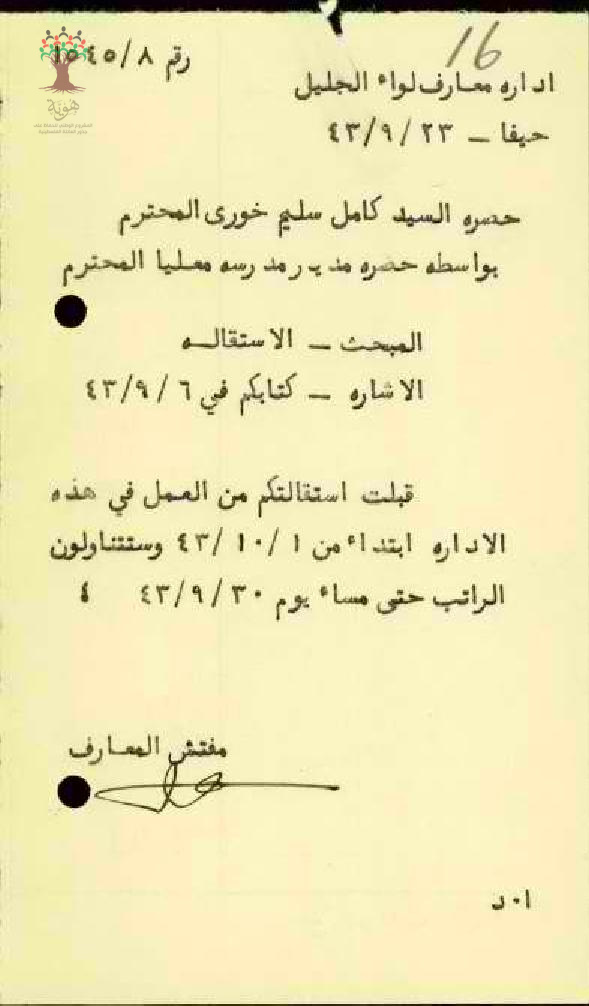 16
رقم ١٥٤٥/٨
هوية
اداره معارف لواء الجليل
حيفا _ ٤٣/٩/٢٣
حضره السيد كامل سليم خورى المحترم
بواسطه حضره مدير مدرسه معليا المحترم
المبحث _ الاستقاله
الاشاره _ كتابكم في ٤٣/٩/٦
قبلت استقالتكم من العمل في هذه
الاداره ابتداء من ٤٣/١٠/١ وستتناولون
الراتب حتى مساء يوم ٤٣/٩/٣٠ ٤
مفتش المعارف
ا٠د